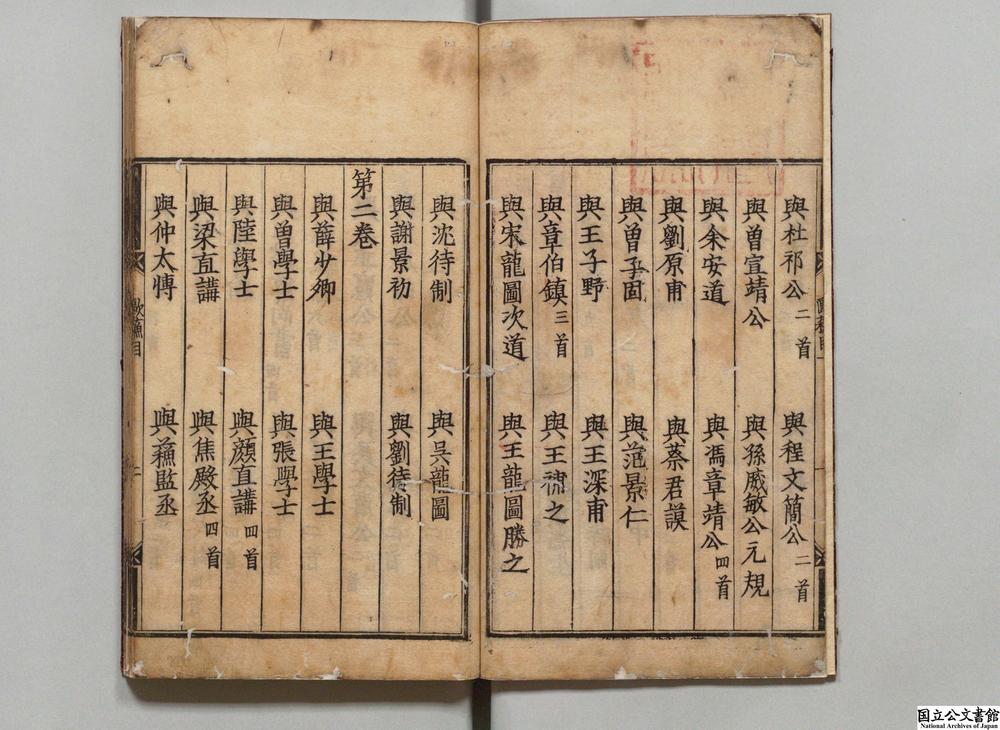 與杜祁公二首 與程文簡公二首
與曾宣靖公 與孫威敏公元規
與余安道 與馮章靖公四首
與劉原甫 與蔡君謨
與曾子固 與范景仁
與王子野 與王深甫
與章伯鎮三首 與王禩之
與宋龍圖次道 與王龍圖勝之
與沈待制 與吳龍圖
與謝景初 與劉待制
第二卷
與薛少卿 與王學士
與曾學士 與張學士
與陸學士 與顏直講四首
與梁直講 與焦殿丞四首
與仲太愽 與蘓監丞
歐蘓目
二
国立公文書館
National Archives of Japan